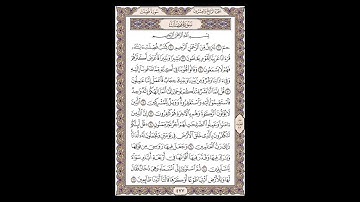 سُورَةُ فُصِّلَتْ
بِسْمِ ٱللَّهِ ٱلرَّحْمَٰنِ ٱلرَّحِيمِ
حمٓ ١ تَنزِيلٌ مِّنَ ٱلرَّحْمَٰنِ ٱلرَّحِيمِ ٢ كِتَٰبٌ فُصِّلَتْ ءَايَٰتُهُۥ
قُرْءَانًا عَرَبِيًّا لِّقَوْمٍ يَعْلَمُونَ ٣ بَشِيرًا وَنَذِيرًا فَأَعْرَضَ أَكْثَرُهُمْ
فَهُمْ لَا يَسْمَعُونَ ٤ وَقَالُوا۟ قُلُوبُنَا فِىٓ أَكِنَّةٍ مِّمَّا تَدْعُونَآ إِلَيْهِ
وَفِىٓ ءَاذَانِنَا وَقْرٌ وَمِنۢ بَيْنِنَا وَبَيْنِكَ حِجَابٌ فَٱعْمَلْ إِنَّنَا
عَٰمِلُونَ ٥ قُلْ إِنَّمَآ أَنَا۠ بَشَرٌ مِّثْلُكُمْ يُوحَىٰٓ إِلَىَّ أَنَّمَآ إِلَٰهُكُمْ إِلَٰهٌ وَٰحِدٌ
فَٱسْتَقِيمُوٓا۟ إِلَيْهِ وَٱسْتَغْفِرُوهُ وَوَيْلٌ لِّلْمُشْرِكِينَ ٦ ٱلَّذِينَ
لَا يُؤْتُونَ ٱلزَّكَوٰةَ وَهُم بِٱلْءَاخِرَةِ هُمْ كَٰفِرُونَ ٧ إِنَّ ٱلَّذِينَ
ءَامَنُوا۟ وَعَمِلُوا۟ ٱلصَّٰلِحَٰتِ لَهُمْ أَجْرٌ غَيْرُ مَمْنُونٍ ٨ قُلْ أَئِنَّكُمْ
لَتَكْفُرُونَ بِٱلَّذِى خَلَقَ ٱلْأَرْضَ فِى يَوْمَيْنِ وَتَجْعَلُونَ لَهُۥٓ أَندَادًا
ذَٰلِكَ رَبُّ ٱلْعَٰلَمِينَ ٩ وَجَعَلَ فِيهَا رَوَٰسِىَ مِن فَوْقِهَا
وَبَٰرَكَ فِيهَا وَقَدَّرَ فِيهَآ أَقْوَٰتَهَا فِىٓ أَرْبَعَةِ أَيَّامٍ سَوَآءً
لِّلسَّآئِلِينَ ١٠ ثُمَّ ٱسْتَوَىٰٓ إِلَى ٱلسَّمَآءِ وَهِىَ دُخَانٌ فَقَالَ لَهَا
وَلِلْأَرْضِ ٱئْتِيَا طَوْعًا أَوْ كَرْهًا قَالَتَآ أَتَيْنَا طَآئِعِينَ ١١
٤٧٧